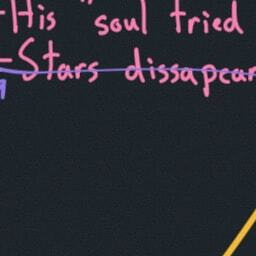 -His "soul tried
-Stars dissapear